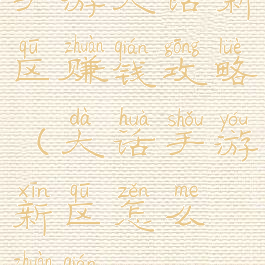 游大话新
qū zhuàn qián gōng lüè
区赚钱攻略
dà huà shǒu yóu
(大话手游
xīn qū zěn me
新区怎么
zhuàn qián